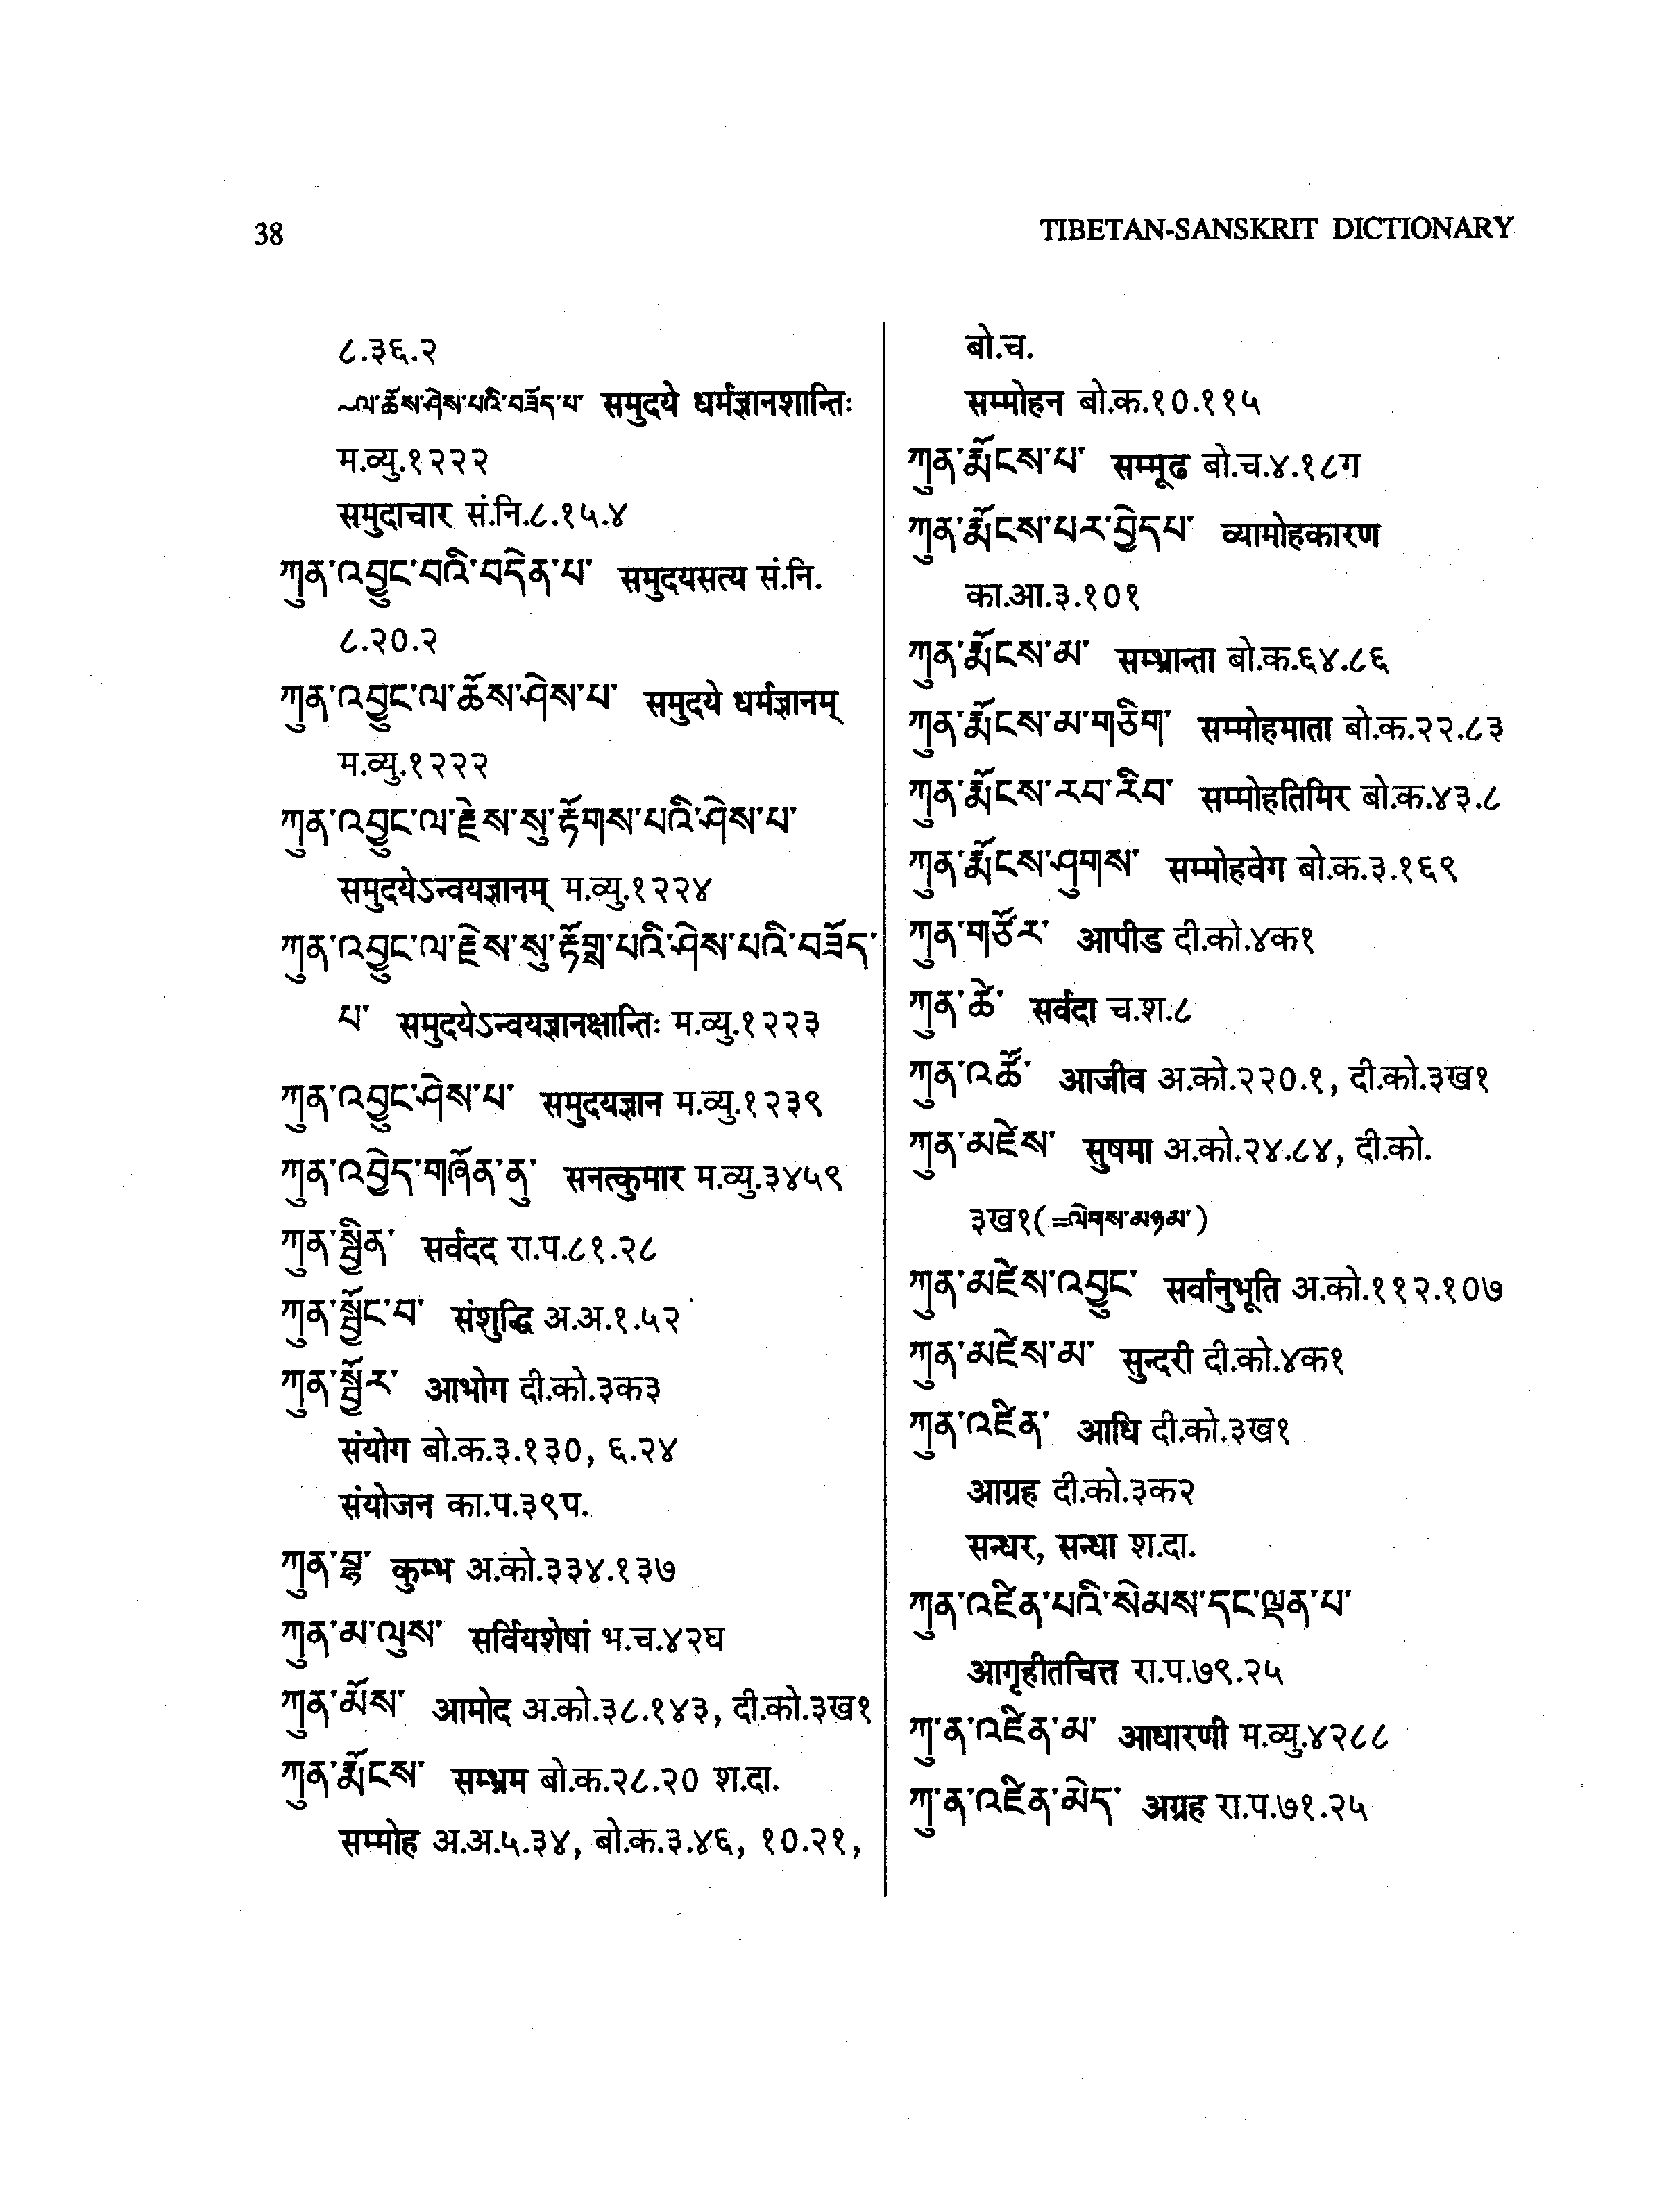 38
TIBETAN-SANSKRIT DICTIONARY
८.३६.२
~ལ་ཆོས་ཤེས་པའི་བཟོད་པ་ समुदये धर्मज्ञानशान्तिः
म.व्यु.१२२२
समुदाचार सं.नि.८.१५.४
ཀུན་འབྱུང་བའི་བདེན་པ་ समुदयसत्य सं.नि.
८.२०.२
ཀུན་འབྱུང་ལ་ཆོས་ཤེས་པ་ समुदये धर्मज्ञानम्
म.व्यु.१२२२
ཀུན་འབྱུང་ལ་རྗེས་སུ་རྟོགས་པའི་ཤེས་པ་
समुदयेऽन्वयज्ञानम् म.व्यु.१२२४
ཀུན་འབྱུང་ལ་རྗེས་སུ་རྟོགྶ་པའི་ཤེས་པའི་བཟོད་
པ་ समुदयेऽन्वयज्ञानक्षान्तिः म.व्यु.१२२३
ཀུན་འབྱུང་ཤེས་པ་ समुदयज्ञान म.व्यु.१२३९
ཀུན་འབྱེད་གཞོན་ནུ་ सनत्कुमार म.व्यु.३४५९
ཀུན་སྦྱིན་ सर्वदद रा.प.८१.२८
ཀུན་སྦྱོང་བ་ संशुद्धि अ.अ.१.५२
ཀུན་སྦྱོར་ आभोग दी.को.३क३
संयोग बो.क.३.१३०, ६.२४
संयोजन का.प.३९प.
ཀུན་བྷ་ कुम्भ अ.को.३३४.१३७
ཀུན་མ་ལུས་ सर्वियशेषां भ.च.४२घ
ཀུན་མོས་ आमोद अ.को.३८.१४३, दी.को.३ख१
ཀུན་རྨོངས་ सम्भ्रम बो.क.२८.२० श.दा.
सम्मोह अ.अ.५.३४, बो.क.३.४६, १०.२१,
बो.च.
सम्मोहन बो.क.१०.११५
ཀུན་རྨོངས་པ་ सम्मूढ बो.च.४.१८ग
ཀུན་རྨོངས་པར་བྱེདཔ་ व्यामोहकारण
का.आ.३.१०१
ཀུན་རྨོངས་མ་ सम्भ्रान्ता बो.क.६४.८६
ཀུན་རྨོངས་མ་གཅིག་ सम्मोहमाता बो.क.२२.८३
ཀུན་རྨོངས་རབ་རིབ་ सम्मोहतिमिर बो.क.४३.८
ཀུན་རྨོངས་ཤུགས་ सम्मोहवेग बो.क.३.१६९
ཀུན་གཙོར་ आपीड दी.को.४क१
ཀུན་ཚེ་ सर्वदा च.श.८
ཀུན་འཚོ་ आजीव अ.को.२२०.१, दी.को.३ख१
ཀུན་མཛེས་ सुषमा अ.को.२४.८४, दी.को.
३ख१(=ལེགས་མཉམ་)
ཀུན་མཛེས་འབྱུང་ सर्वानुभूति अ.को.११२.१०७
ཀུན་མཛེས་མ་ सुन्दरी दी.को.४क१
ཀུན་འཛིན་ आधि दी.को.३ख१
आग्रह दी.को.३क२
सन्धर, सन्धा श.दा.
ཀུན་འཛིན་པའི་སེམས་དང་ལྡན་པ་
आगृहीतचित्त रा.प.७९.२५
ཀུ་ན་འཛིན་མ་ आधारणी म.व्यु.४२८८
ཀུ་ན་འཛིན་མེད་ अग्रह रा.प.७१.२५